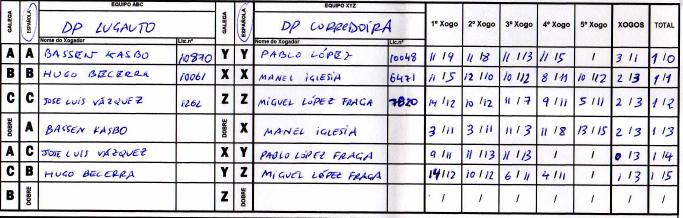 GALEGA ESPAÑOLA EQUIPO ABC GALEGA ESPAÑOLA EQUIPO XYZ
DP LUGAUTO DP CORREDOIRA 1º Xogo 2º Xogo 3º Xogo 4º Xogo 5º Xogo XOGOS TOTAL
Nome do Xogador Lic.nº Nome do Xogador Lic.nº
A A BASSEN KASBO 10870 Y Y PABLO LÓPEZ 10048 11/9 11/8 11/13 11/5 / 3/1 1/0
B B HUGO BECERRA 10061 X X MANEL IGLESIA 6471 11/5 12/10 10/12 8/11 10/12 2/3 1/1
C C JOSE LUIS VÁZQUEZ 1262 Z Z MIGUEL LÓPEZ FRAGA 7820 14/12 10/12 11/7 9/11 5/11 2/3 1/2
DOBRE A BASSEN KASBO DOBRE X MANEL IGLESIA 3/11 3/11 11/3 11/8 13/15 2/3 1/3
A C JOSE LUIS VÁZQUEZ X Y PABLO LÓPEZ FRAGA 9/11 11/13 11/13 / / 0/3 1/4
C B HUGO BECERRA Y Z MIGUEL LÓPEZ FRAGA 14/12 10/12 6/11 4/11 / 1/3 1/5
B DOBRE Z DOBRE / / / / / / /